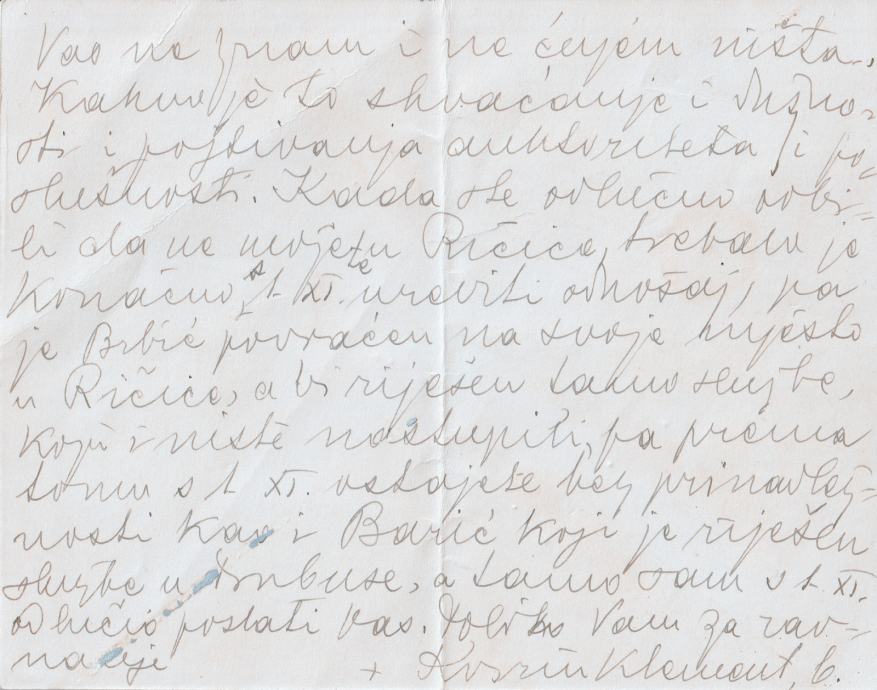 Vas ne znam i ne cijem ništa.
Kakvo je to shvaćanje i dužno-
sti i poštivanja auktoriteta i po-
slušnosti. Kada ste odlučno odbi-
li da ne možete u Ričice, trebalo je
konačno s 1. XI. te urediti odnošaj, pa
je Brbić povraćen na svoje mjesto
u Ričice, a Vi riješen tamo službe,
koju i niste nastupili, pa prema
tomu s 1. XI. ostajete bez prinadlež-
nosti kao i Barić koji je riješen
službe u Drubuse, a tamo sam s 1. XI.
odlučio poslati Vas. Toliko Vam za rav-
nanje + Klement, b.